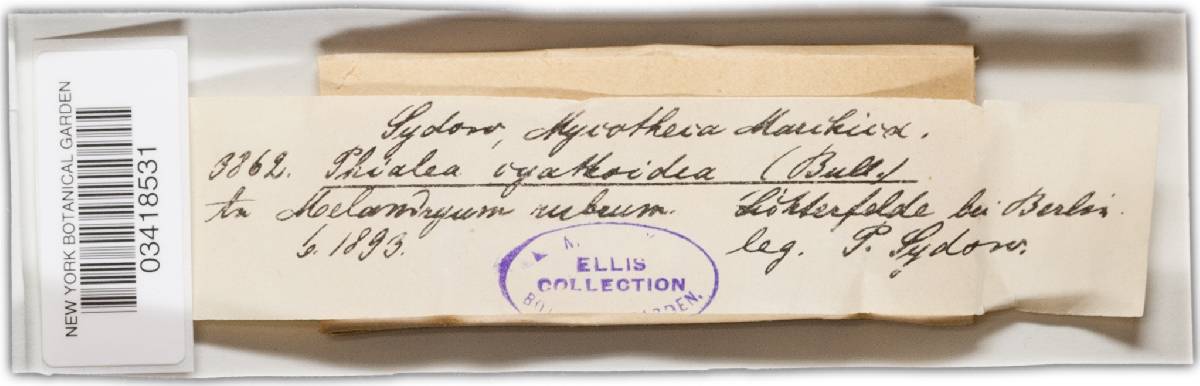 NEW YORK BOTANICAL GARDEN
03418531
Sydow, Mycotheca Marchica.
3862. Phialea cyathoidea (Bull.)
An Melandryum rubrum. Lichterfelde bei Berlin.
6. 1893. leg. P. Sydow.
ELLIS
COLLECTION